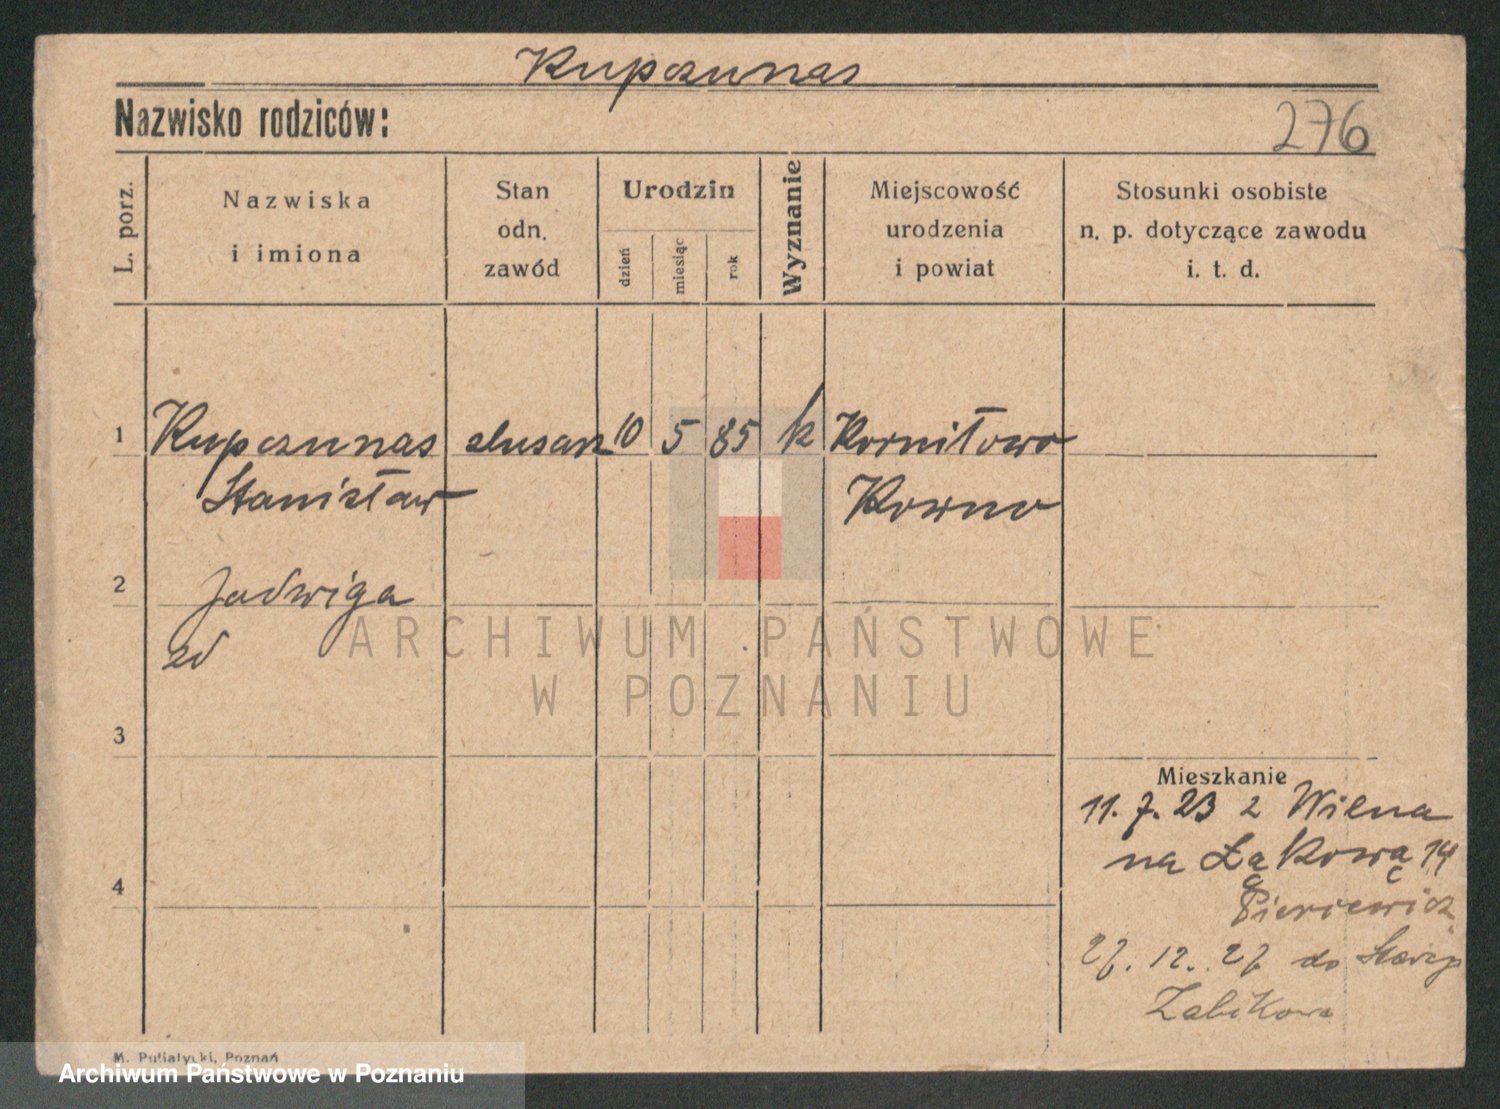 Kupczunas
Nazwisko rodziców:
276
L. porz.
Nazwiska
i imiona
Stan
odn.
zawód
Urodzin
dzień
miesiąc
rok
Wyznanie
Miejscowość
urodzenia
i powiat
Stosunki osobiste
n. p. dotyczące zawodu
i. t. d.
1 Kupczunas ślusarz 10 5 85 k Kornitowo
Stanisław Kowno
2 Jadwiga
zd
3
4
Mieszkanie
11. 7. 23 z Wilna
na Łąkową 14
27. 12. 27 do
Żabikowa
ARCHIWUM PAŃSTWOWE
W POZNANIU
M. Putiatycki, Poznań
Archiwum Państwowe w Poznaniu